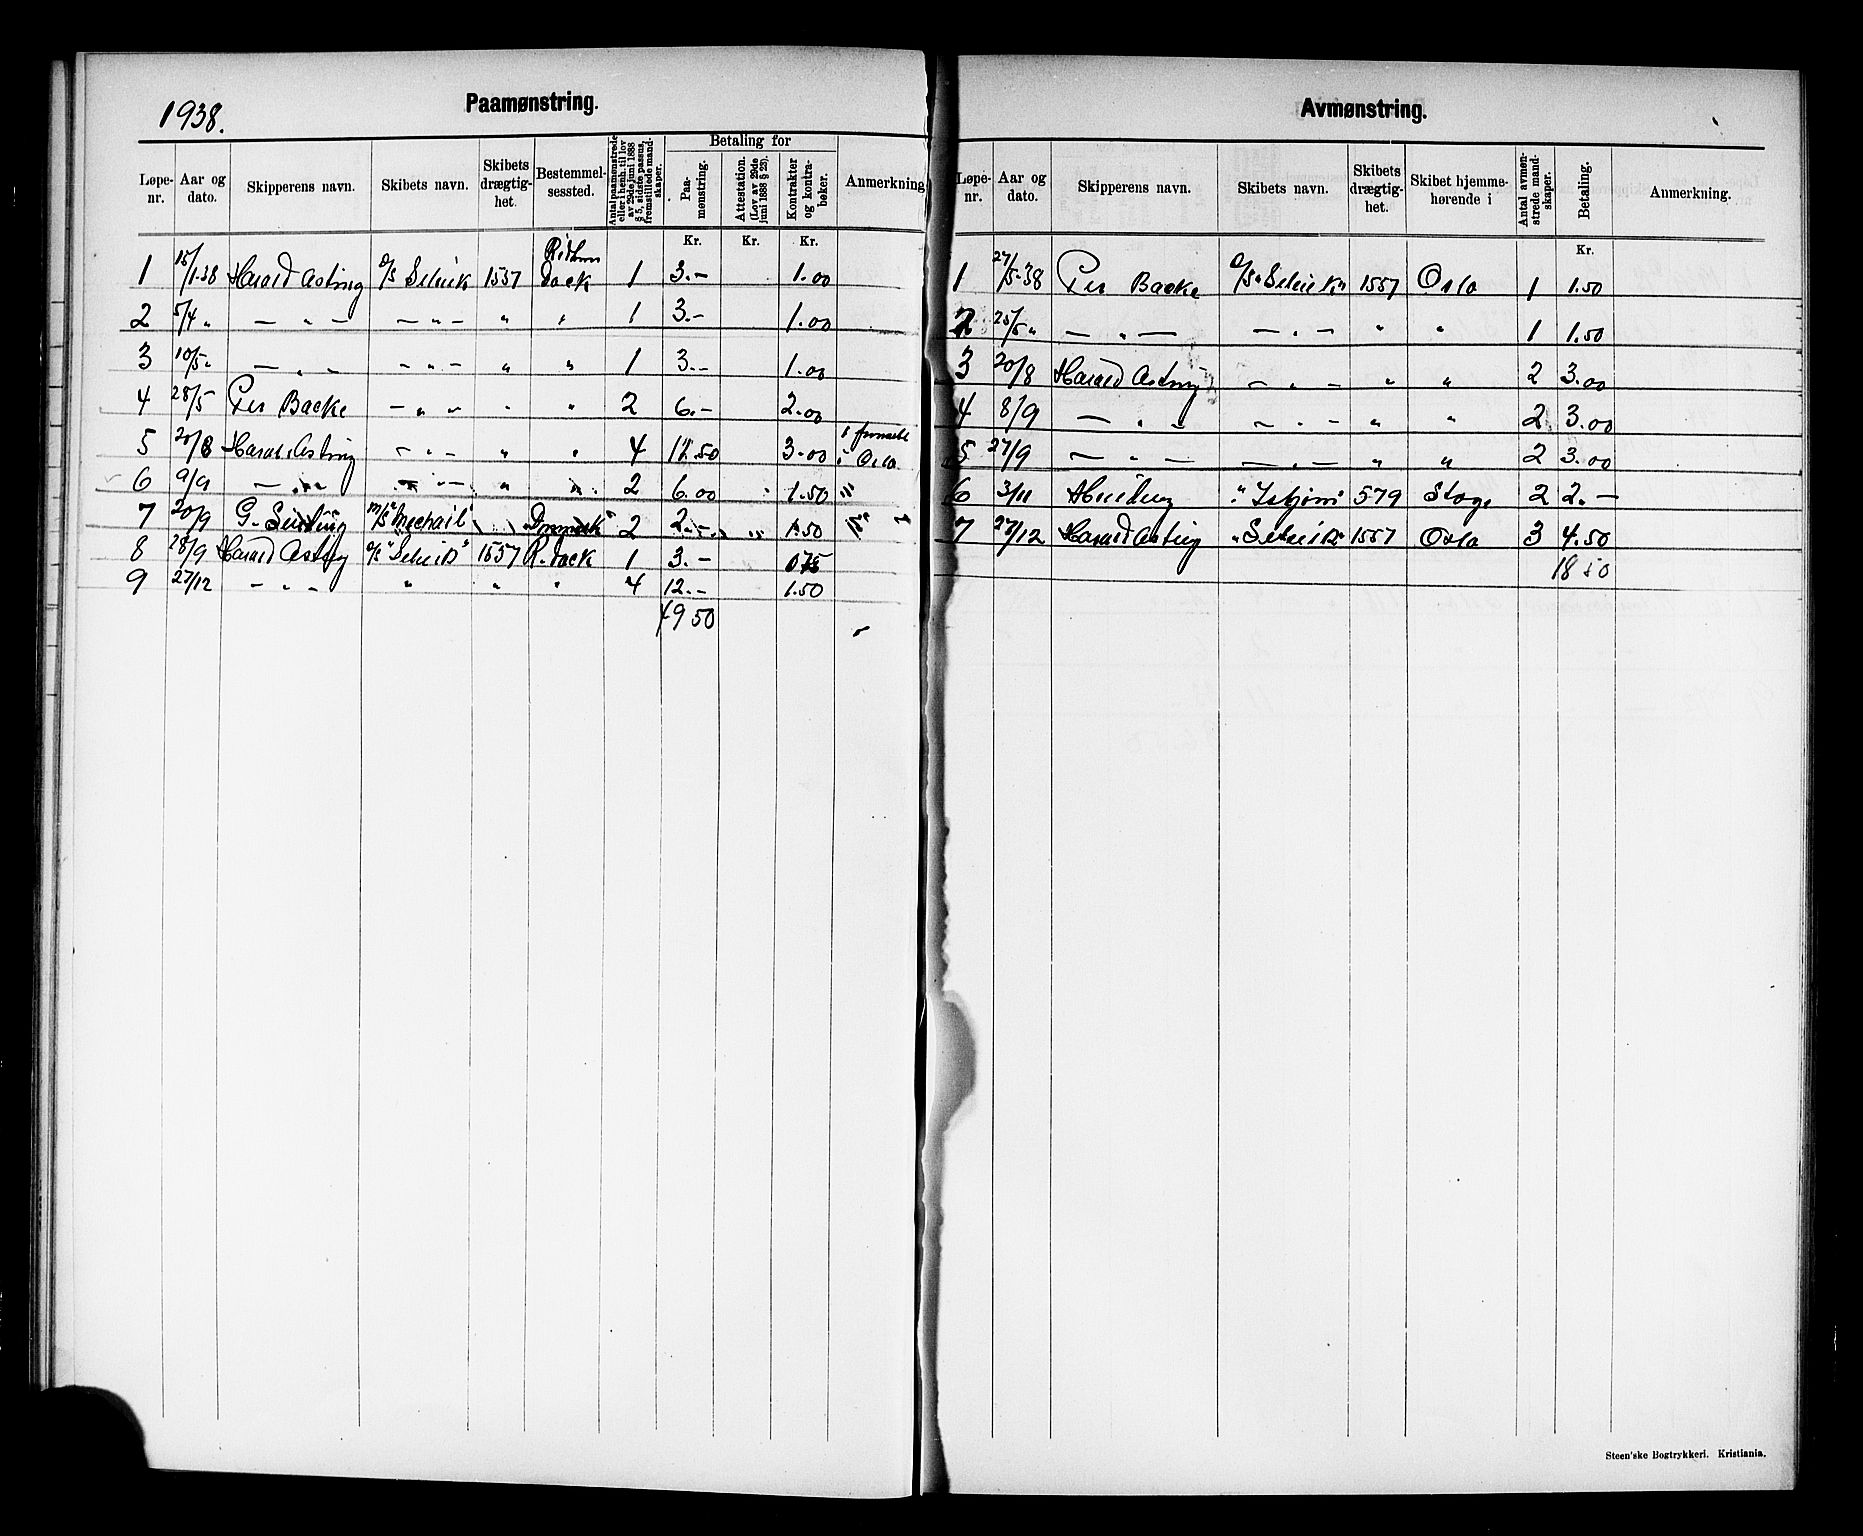 1938.
Paamønstring.
Løpe-nr. Aar og dato. Skipperens navn. Skibets navn. Skibets drægtig-het. Bestemmel-sessted. Antal paamønstrede eller i henh. til lov av 29de juni 1888 § 5, sidste passus, fremstillede mand-skaper. Betaling for Paa-mønstring. Attestation. (Lov av 29de juni 1888 § 23). Kontrakter og kontra-bøker. Anmerkning
Kr. Kr. Kr.
1 15/1-38 Harald Astring Selvik 1557 Dock 1 3.- 1.00
2 5/4 " — " — — " — " " 1 3.- 1.00
3 10/5 " — " — — " — " " 1 3.- 1.00
4 28/5 Per Backe — " — " " 2 6.- 2.00
5 20/8 Harald Astring — " — " " 4 12.50 3.00 Oslo
6 9/9 — " — — " — " " 2 6.00 1.50
7 20/9 G. M/S "Mechail" Danmark 2 2.- 1.50
8 28/9 Harald Astring "Selvik" 1557 R. Dock 1 3.- 0.75
9 27/12 — " — " " " 4 12.- 1.50
49 50
Avmønstring.
Løpe-nr. Aar og dato. Skipperens navn. Skibets navn. Skibets drægtig-het. Skibet hjemme-hørende i Antal avmøn-strede mand-skaper. Betaling. Anmerkning.
Kr.
1 27/5-38 Per Backe "Selvik" 1557 Oslo 1 1.50
2 25/5 " — " — — " — " " 1 1.50
3 20/8 Harald Astring — " — " " 2 3.00
4 8/9 — " — — " — " " 2 3.00
5 27/9 — " — — " — " " 2 3.00
6 3/11 "Isbjørn" 579 2 2.-
7 27/12 Harald Astring "Selvik" 1557 Oslo 3 4.50
18 50
Steen'ske Bogtrykkeri. Kristiania.